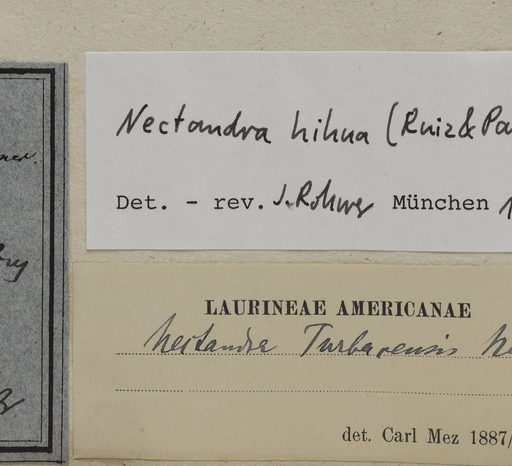 Nectandra hihua (Ruiz & Pa
Det. - rev. J. Rohwer München 1
LAURINEAE AMERICANAE
Nectandra Turbacensis N
det. Carl Mez 1887/